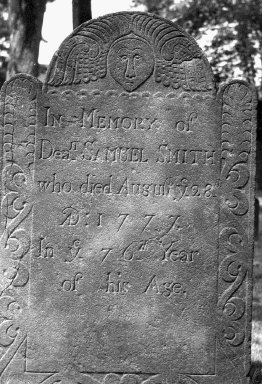 In Memory of
Deaⁿ Samuel Smith
who died August yᵉ 28
AD: 1777.
In yᵉ 76ᵗʰ Year
of his Age.